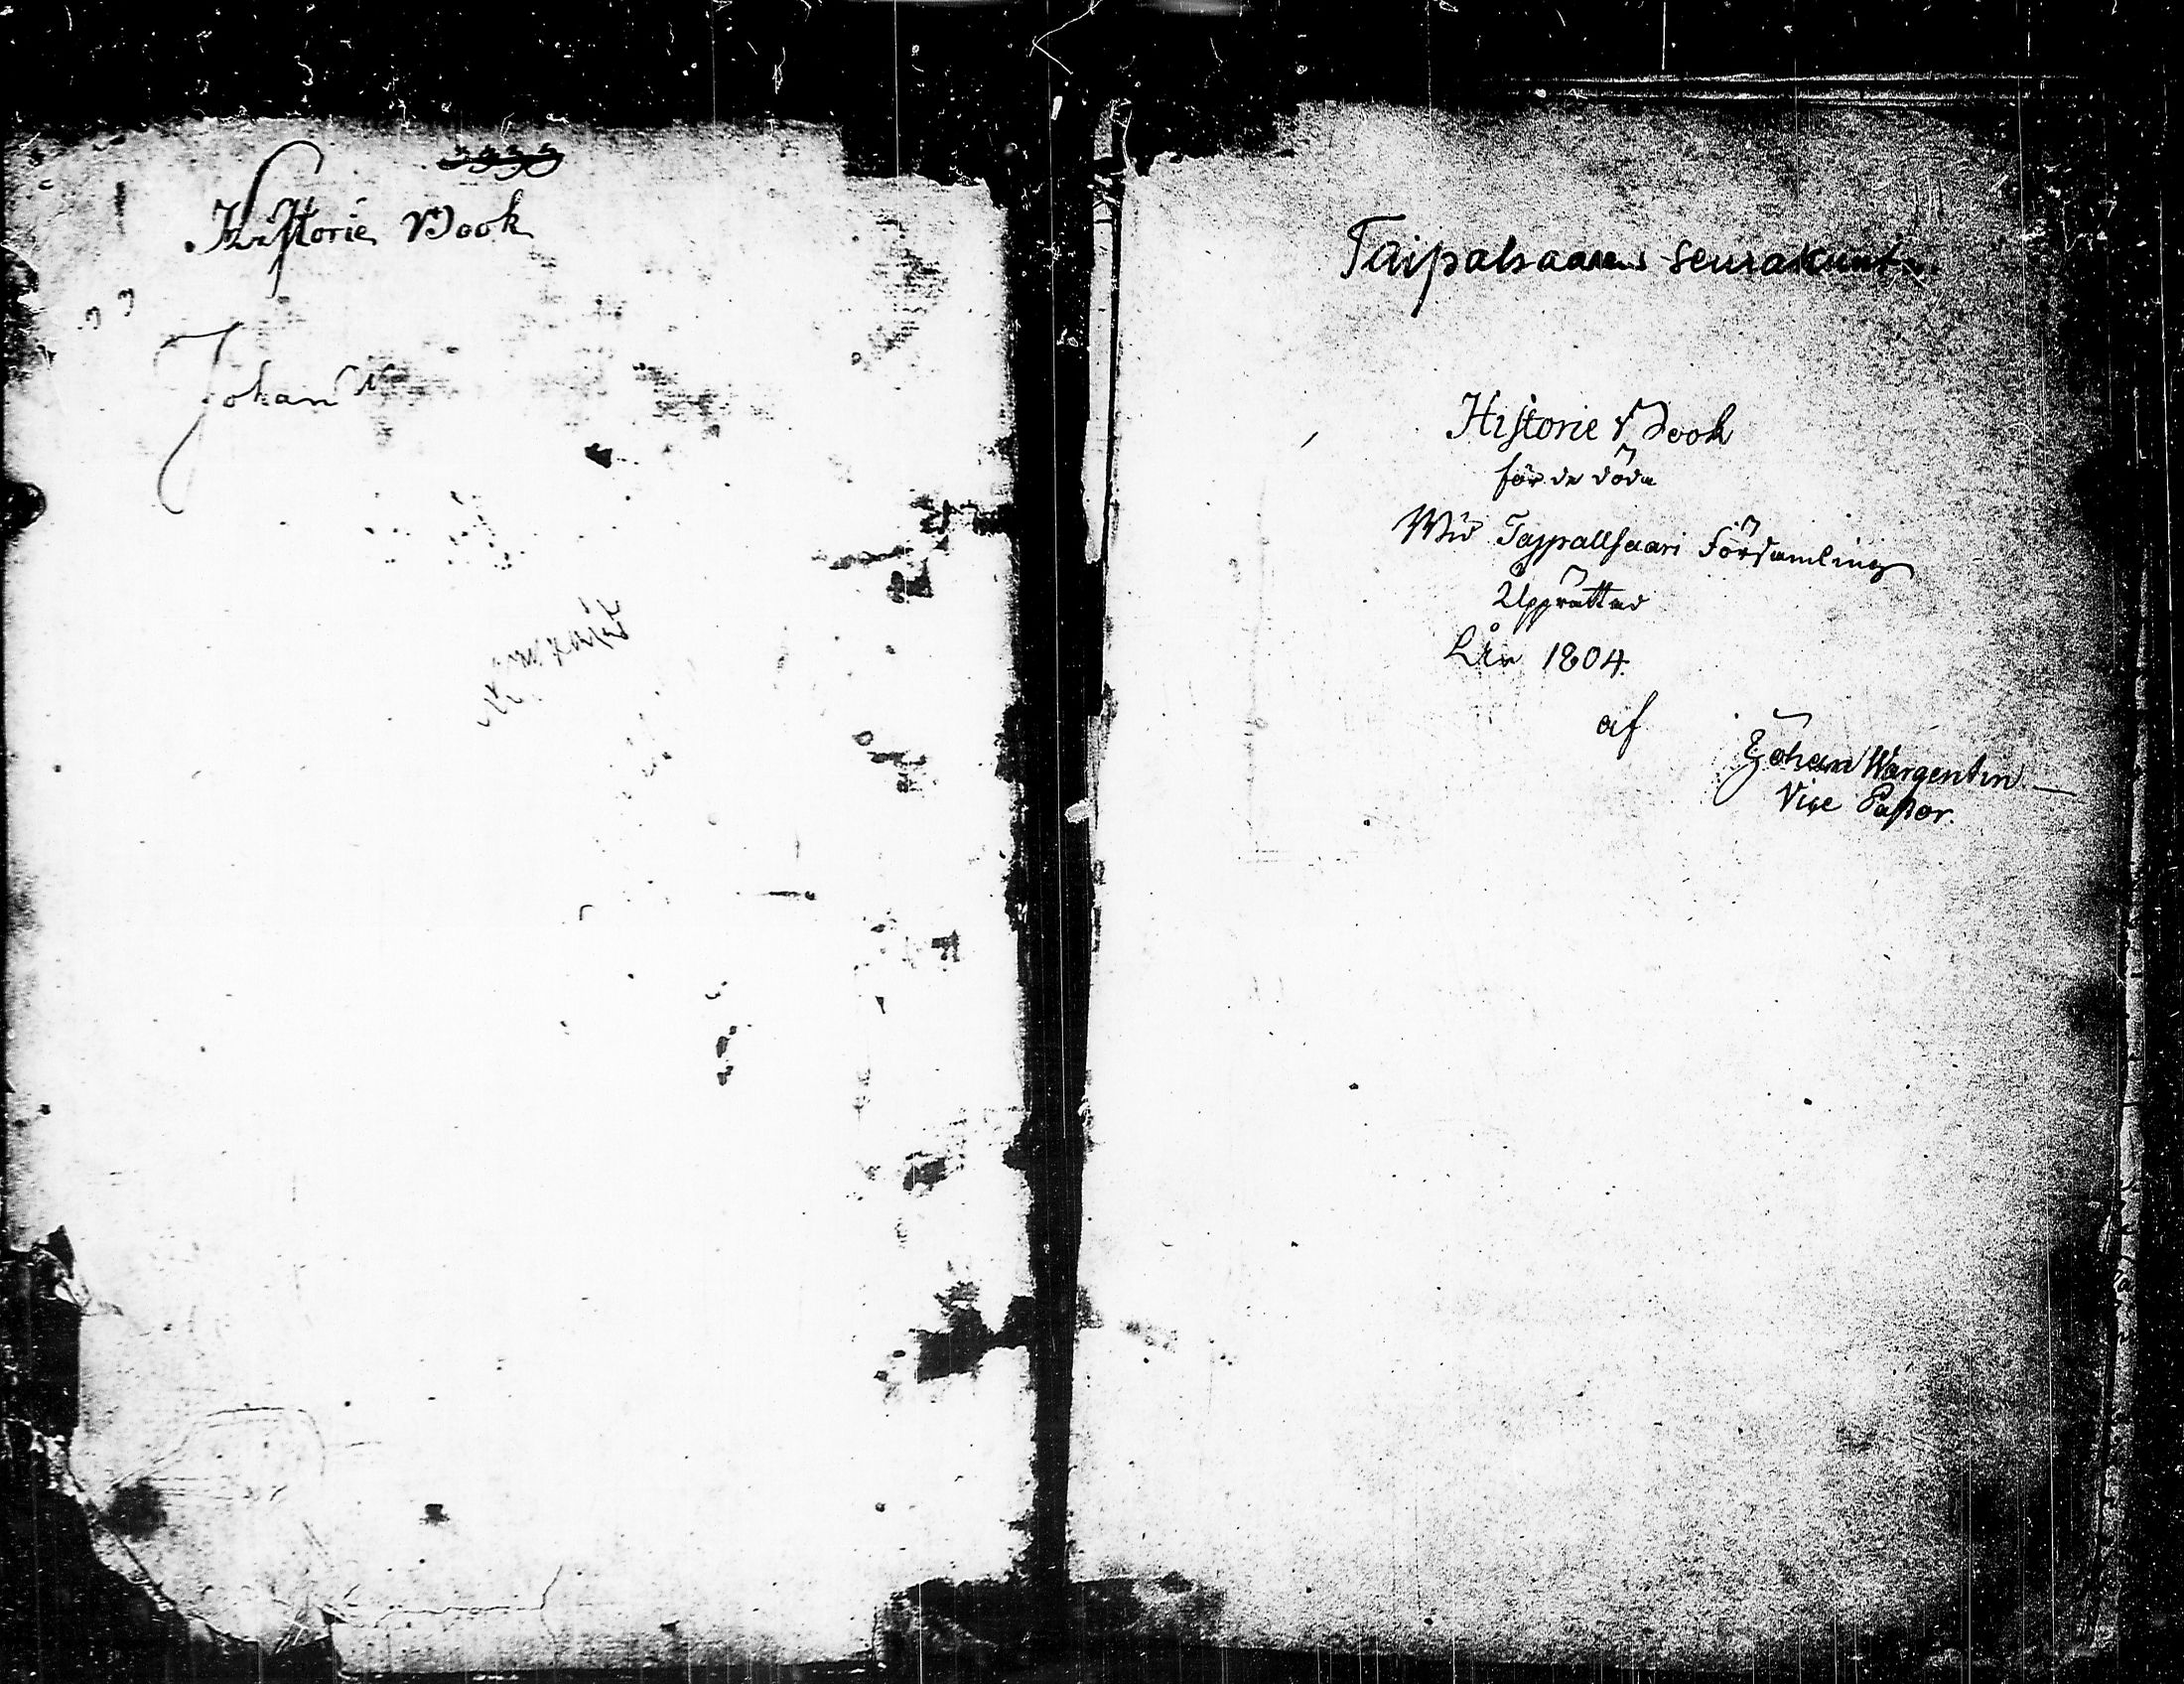 Historie Book
Johan W
Taipalsaaren seurakunta.
Historie Book
för de döda
Wid Tajpallsaari Församling
Upprättad
År 1804.
af
Johan Wargentin.
Vice Pastor.